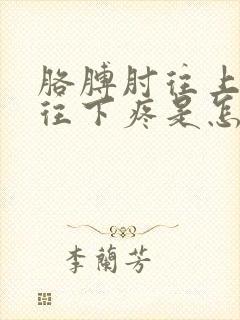 胳膊肘往上
往下疼是怎
李蘭芳